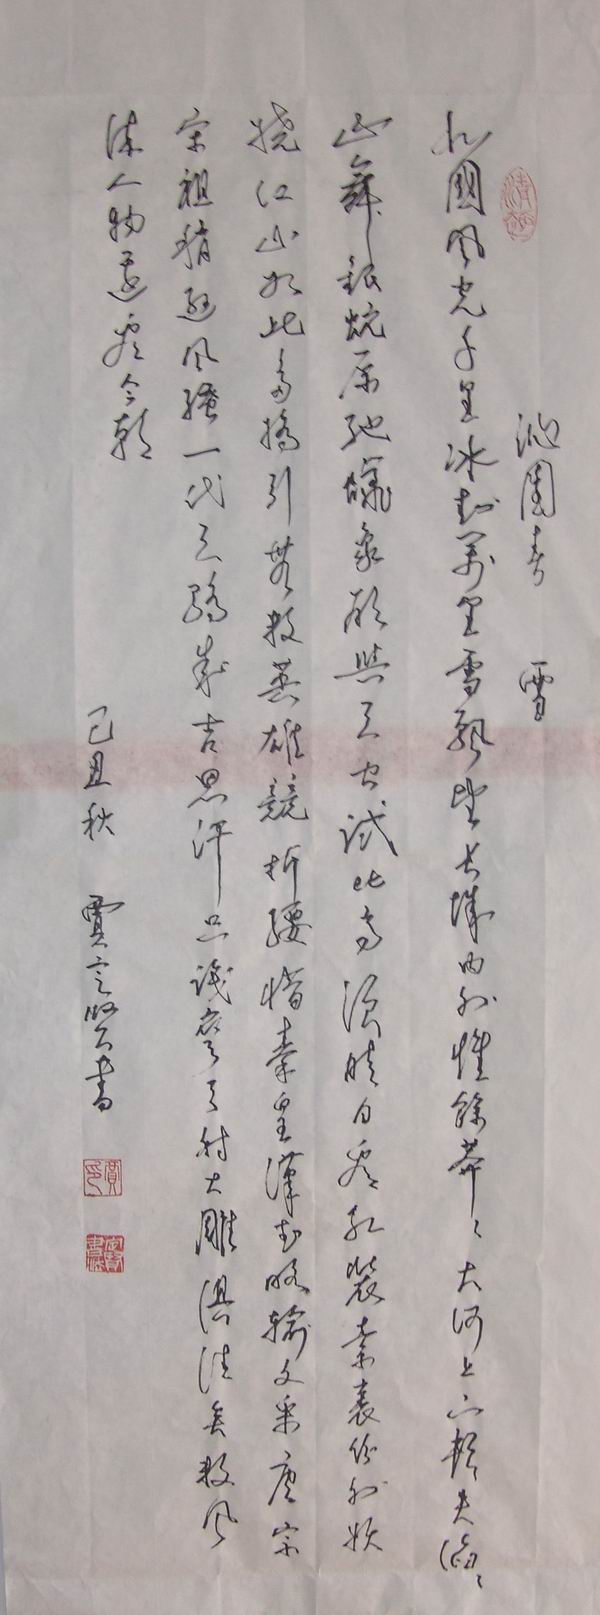 沁園春 雪
北國風光千里冰封萬里雪飄望長城內外惟餘莽々大河上下頓失滔々
山舞銀蛇原馳蠟象欲與天公試比高須晴日看紅裝素裹份外妖
嬈江山如此多嬌引無數英雄競折腰惜秦皇漢武略輸文采唐宗
宋祖稍遜風騷一代天驕成吉思汗只識彎弓射大雕俱往矣數風
流人物還看今朝
己丑秋 賈賢書